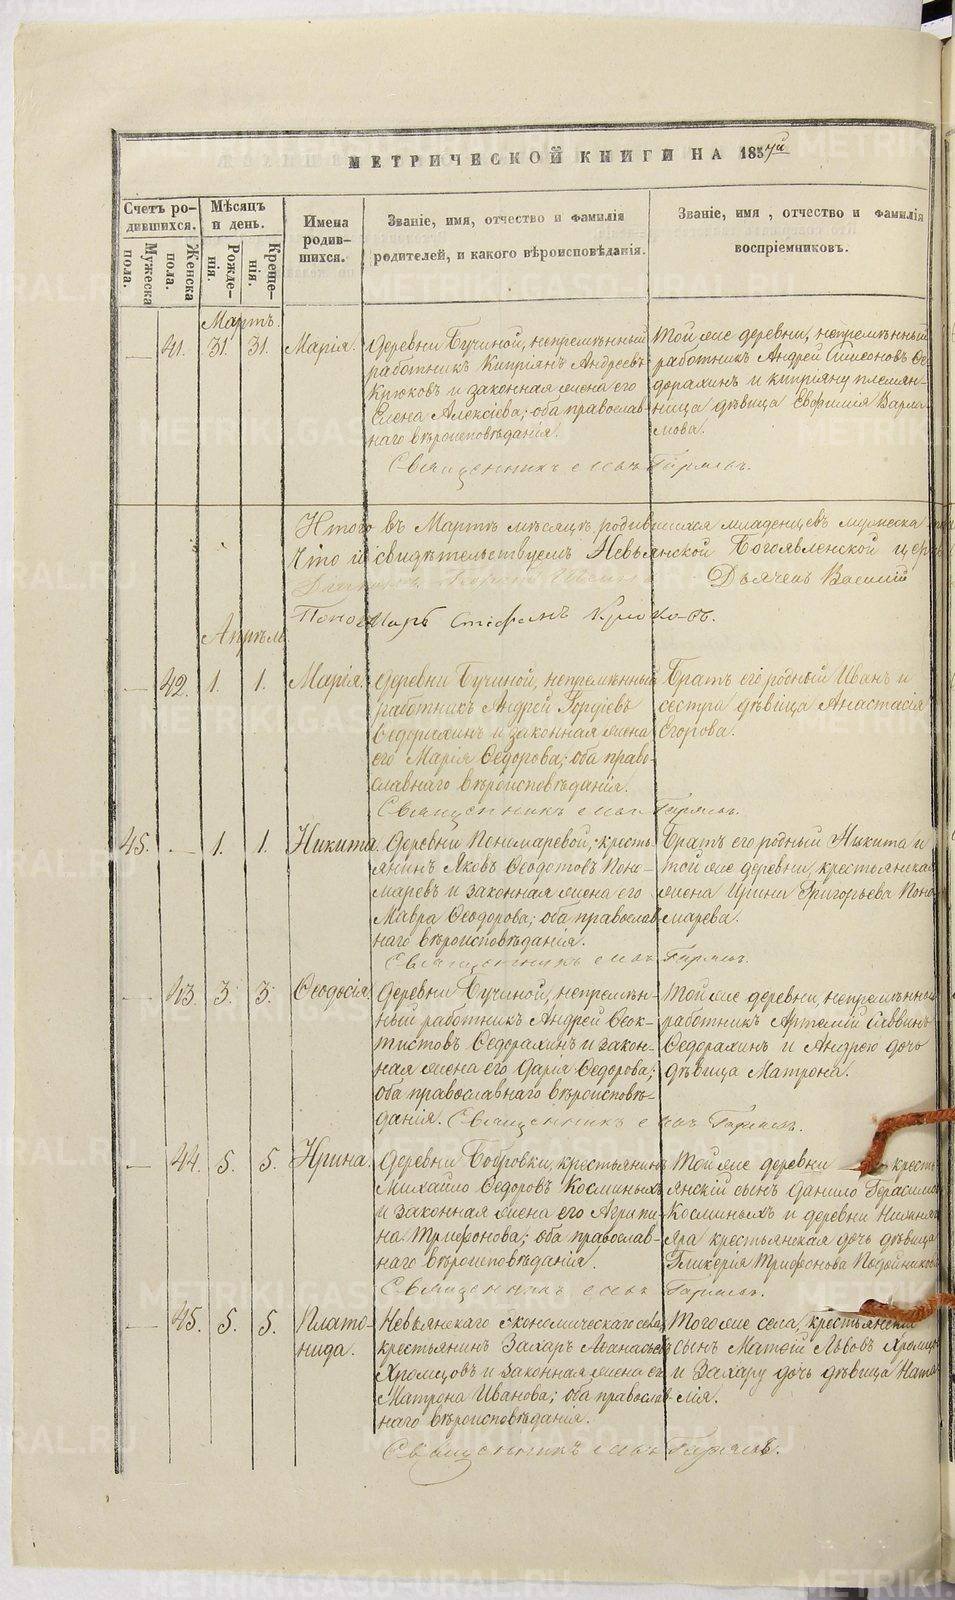 МЕТРИЧЕСКОЙ КНИГИ НА 1857й
Счетъ ро-
дившихся.
Мужеска
пола.
Женска
пола.
Мѣсяцъ
и день.
Рожде-
нія.
Креще-
нія.
Имена
родив-
шихся.
Званіе, имя, отчество и фамилія
родителей, и какого вѣроисповѣданія.
Званіе, имя, отчество и фамилія
воспріемниковъ.
Мартъ.
— 41. 31. 31. Марія.
Деревни Бучиной, непремѣнный
работникъ Кипріянъ Андреевъ
Крюковъ и законная жена его
Елена Алексіева; оба православ-
наго вѣроисповѣданія.
Той же деревни, непремѣнный
работникъ Андрей Симеоновъ Ѳе-
дорахинъ и Кипріяну племян-
ница дѣвица Евфимія Варла-
мова.
Священникъ
Итого въ Мартѣ мѣсяцѣ родившихся младенцевъ мужеска
Что и свидѣтельствуемъ Невьянской Богоявленской
Дьяченъ Василій
Пономарь Стефанъ
Апрѣль
— 42. 1. 1. Марія.
Деревни Бучиной, непремѣнный
работникъ Андрей Гордіевъ
Ѳедорахинъ и законная жена
его Марія Ѳедорова; оба право-
славнаго вѣроисповѣданія.
Братъ его родный Иванъ и
сестра дѣвица Анастасія
Егорова.
Священникъ
45. — 1. 1. Никита
Деревни Пономаревой, кресть-
янинъ Яковъ Ѳеодотовъ Поно-
маревъ и законная жена его
Мавра Ѳеодорова; оба православ-
наго вѣроисповѣданія.
Братъ его родный Никита и
той же деревни, крестьянская
жена Ирина Григорьева Поно-
марева.
Священникъ
— 43. 3. 3. Ѳеодосія.
Деревни Бучиной, непремѣн-
ный работникъ Андрей Ѳеок-
тистовъ Ѳедорахинъ и закон-
ная жена его Дарія Ѳедорова;
оба православнаго вѣроисповѣ-
данія. Священникъ
Той же деревни, непремѣнный
работникъ Артемій Саввинъ
Ѳедорахинъ и Андрею дочь
дѣвица Матрона.
— 44. 5. 5. Ирина.
Деревни Бобровки, крестьянинъ
Михайло Ѳедоровъ Косминыхъ
и законная жена его Агрипи-
на Трифонова; оба православ-
наго вѣроисповѣданія.
Той же деревни кресть-
янскій сынъ Данило Герасимовъ
Косминыхъ и деревни
крестьянская дочь дѣвица
Гликерія Трифонова
Священникъ
— 45. 5. 5. Плато-
нида.
Невьянскаго Экономическаго села,
крестьянинъ Захаръ Аѳанасьевъ
Храмцовъ и законная жена его
Матрона Иванова; оба православ-
наго вѣроисповѣданія.
Того же села, крестьянскій
сынъ Матѳій Львовъ
и Захару дочь дѣвица Ната-
лія.
Священникъ